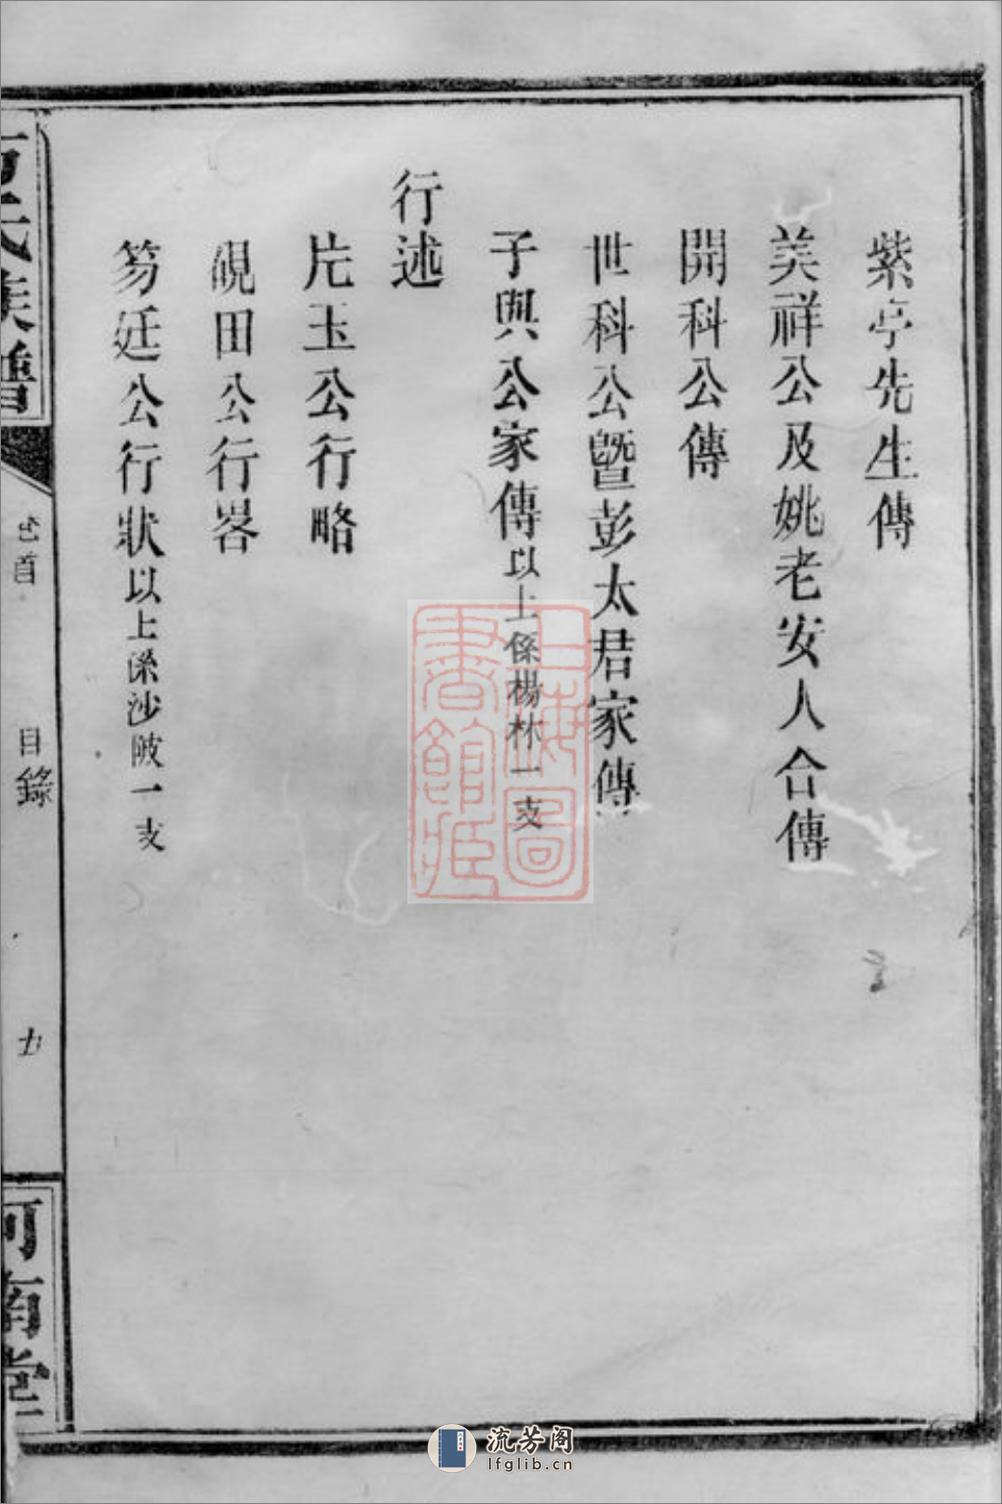 紫亭先生傳
美祥公及姚老安人合傳
開科公傳
世科公暨彭太君家傳
子與公家傳以上係楊林一支
行述
片玉公行略
硯田公行畧
笏廷公行狀以上係沙陂一支
氏族譜
卷首
目錄
河南堂
上海圖書館藏
流芳阁
lfglib.cn